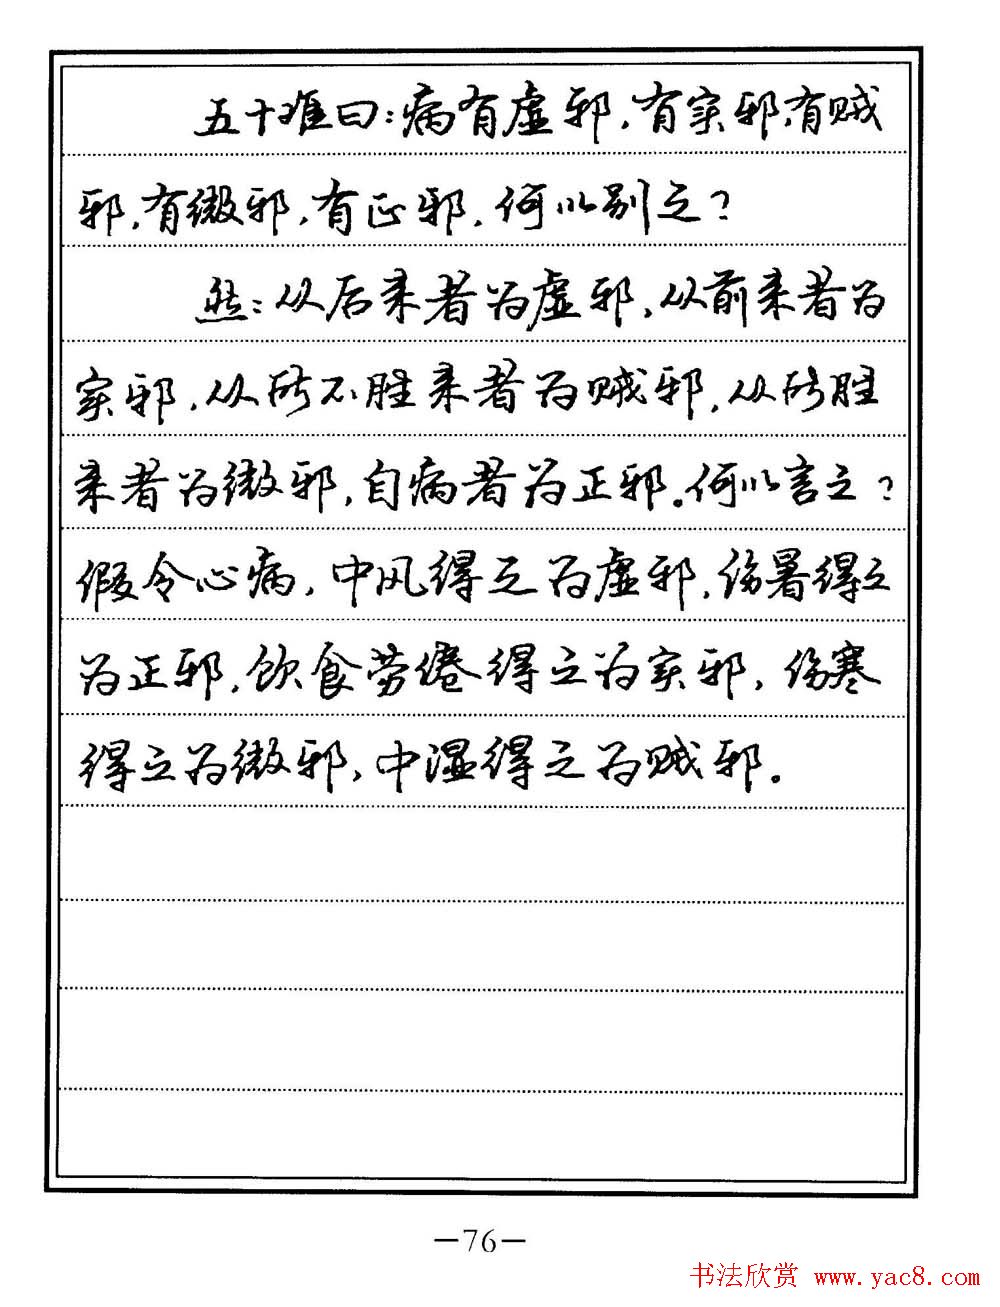 五十难曰：病有虚邪，有实邪，有贼
邪，有微邪，有正邪，何以别之？
然：从后来者为虚邪，从前来者为
实邪，从所不胜来者为贼邪，从所胜
来者为微邪，自病者为正邪。何以言之？
假令心病，中风得之为虚邪，伤暑得之
为正邪，饮食劳倦得之为实邪，伤寒
得之为微邪，中湿得之为贼邪。
—76—
书法欣赏 www.yac8.com